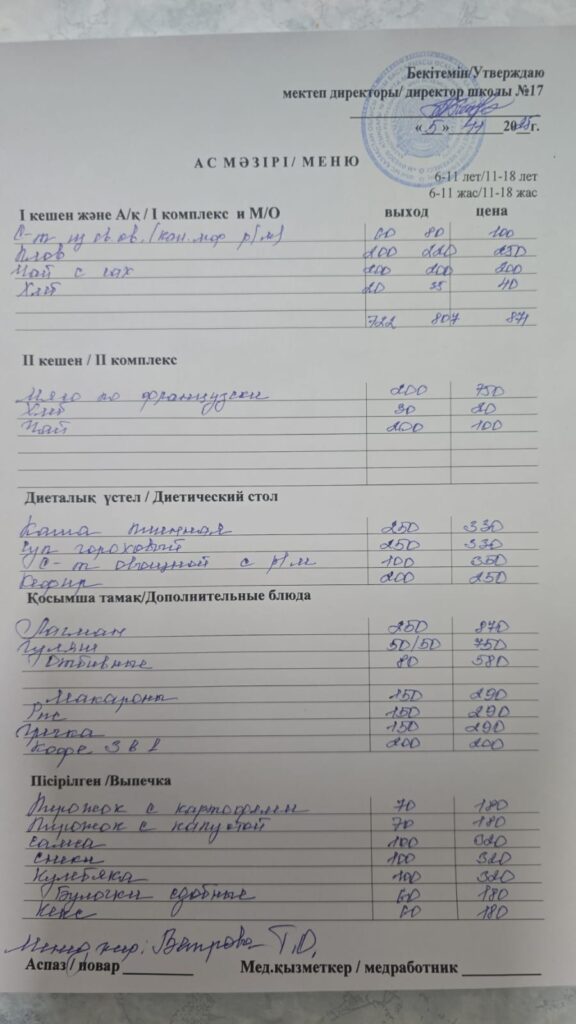 Бекітемін/Утверждаю
мектеп директоры/ директор школы №17
« 5 » 11 2025г.
АС МӘЗІРІ/ МЕНЮ
6-11 лет/11-18 лет
6-11 жас/11-18 жас
І кешен және А/қ / І комплекс и М/О выход цена
С-т из св.ов. (кап.мор р/м) 60 80 100
Плов 200 220 250
Чай с сах 200 200 200
Хлеб 20 35 40
722 807 871
ІІ кешен / ІІ комплекс
Мясо по французски 200 750
Хлеб 30 20
Чай 200 100
Диеталық үстел / Диетический стол
Каша пшенная 250 330
Суп гороховый 250 330
С-т овощной с р/м 100 350
Кефир 200 250
Қосымша тамақ/Дополнительные блюда
Лагман 250 870
Гуляш 50/50 750
Отбивные 80 580
Макароны 150 290
Рис 150 290
Гречка 150 290
Кофе 3 в 1 200 200
Пісірілген /Выпечка
Пирожок с картофелем 70 180
Пирожок с капустой 70 180
Самса 100 320
Снеки 100 320
Кулебяка 100 320
Булочки сдобные 60 180
Кекс 60 180
Менеджер: Т.О.
Аспаз / повар Мед.қызметкер / медработник